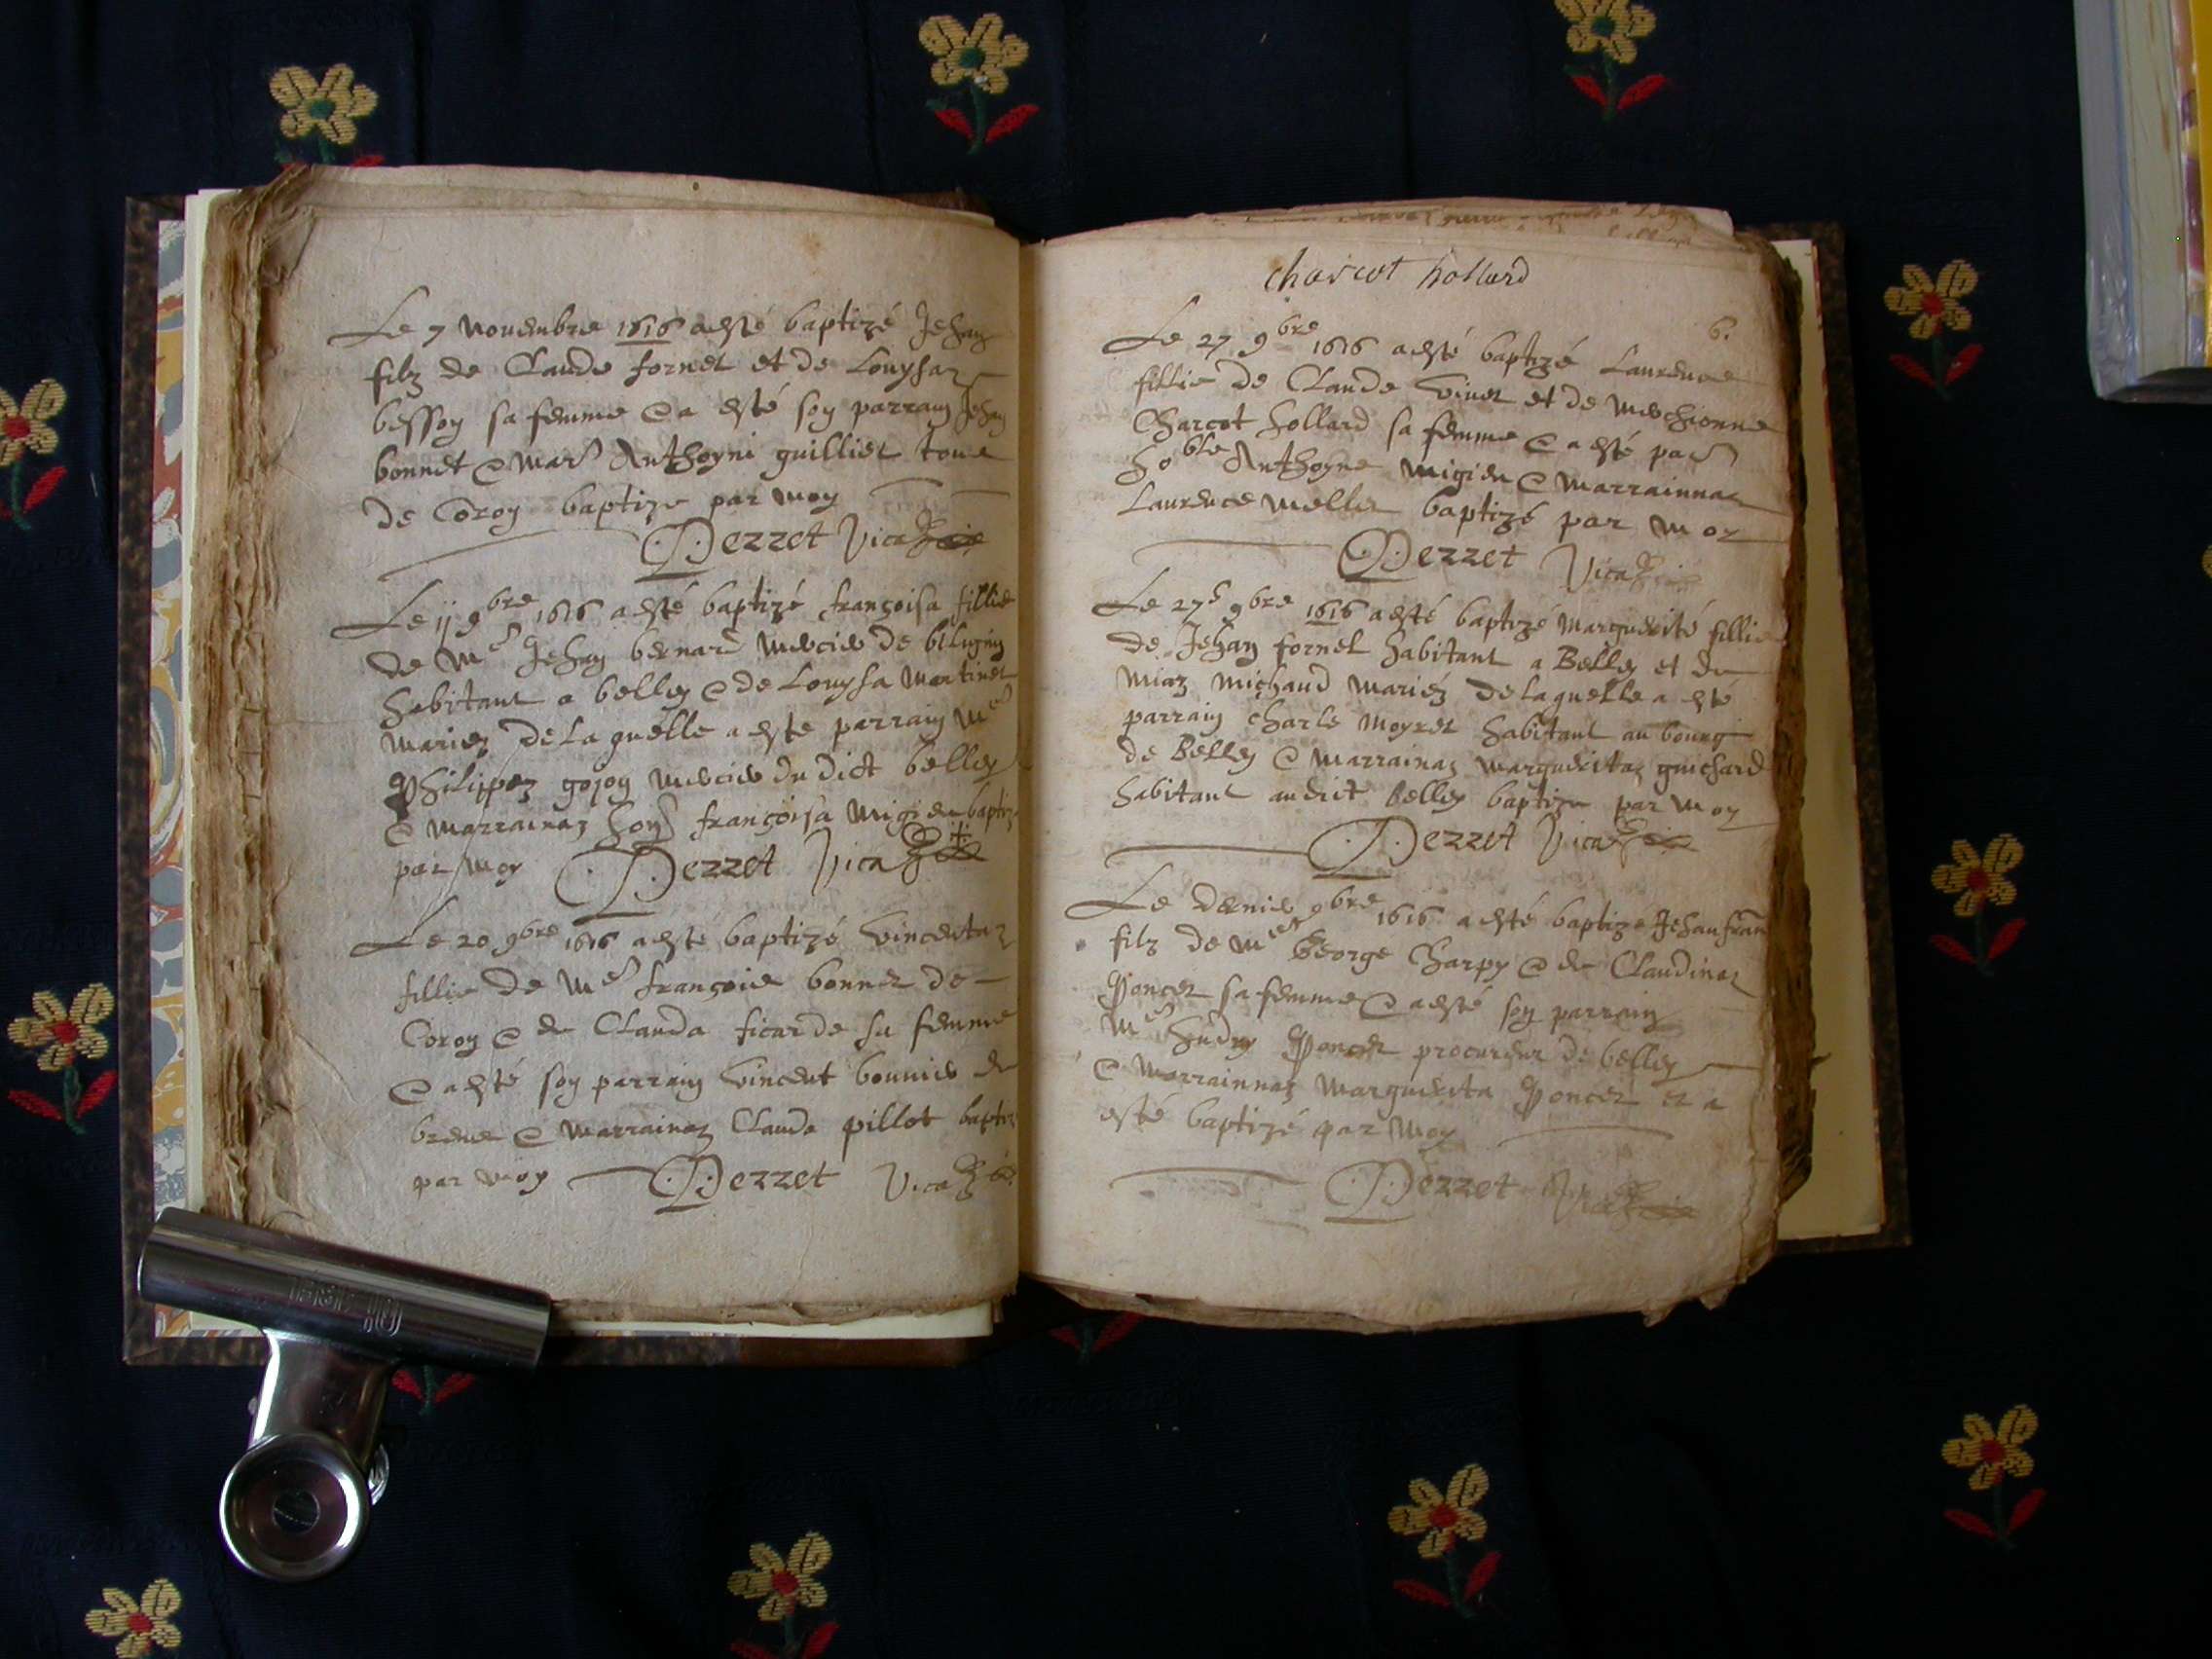 Le 7 novembre 1616 a esté baptizé Jehan
filz de Claude fornet et de Louysaz
besson sa femme & a esté son parrain Jehan
bonnet & mar Anthoyni guilliet tous
de Coron baptize par moy
Dezzet Vica
Le ij 9bre 1616 a esté baptizé françoisa fillie
de Me Jehan bernard mercier de
habitant a belley & de Louysa martinet
mariez de laquelle a este parrain Me
Philippez gojon mercier du dict belley
& marrainaz françoisa migieu baptiz
par moy Dezzet Vica
Le 20 9bre 1616 a esté baptizé vincentaz
fillie de Me françois bonnet de
Coron & de Clauda ficarde sa femme
& a esté son parrain vincent bonnier de
brene & marrainaz Clauda pillot baptiz
par moy Dezzet Vica
charcot hollard
6.
Le 27 9bre 1616 a esté baptizé Laurence
fillie de Claude vinet et de
Charcot hollard sa femme & a esté par
hoble Anthoyne migieu & marrainnaz
Laurence mellet baptizé par moy
Dezzet Vica
Le 27e 9bre 1616 a esté baptizé marguerité fillie
de Jehan fornet habitant a Belley et de
miaz michaud mariéz de laquelle a esté
parrain charle moyret habitant au bourg
de Belley & marrainaz margueritaz guichard
habitant audict Belley baptize par moy
Dezzet Vica
Le dernier 9bre 1616 a esté baptize Jehan fran
filz de George Charpy & de Claudinaz
Poncet sa femme & a esté son parrain
Me Poncet procureur de belley
& marrainnaz marguerita Poncet et a
esté baptizé par moy
Dezzet Vica